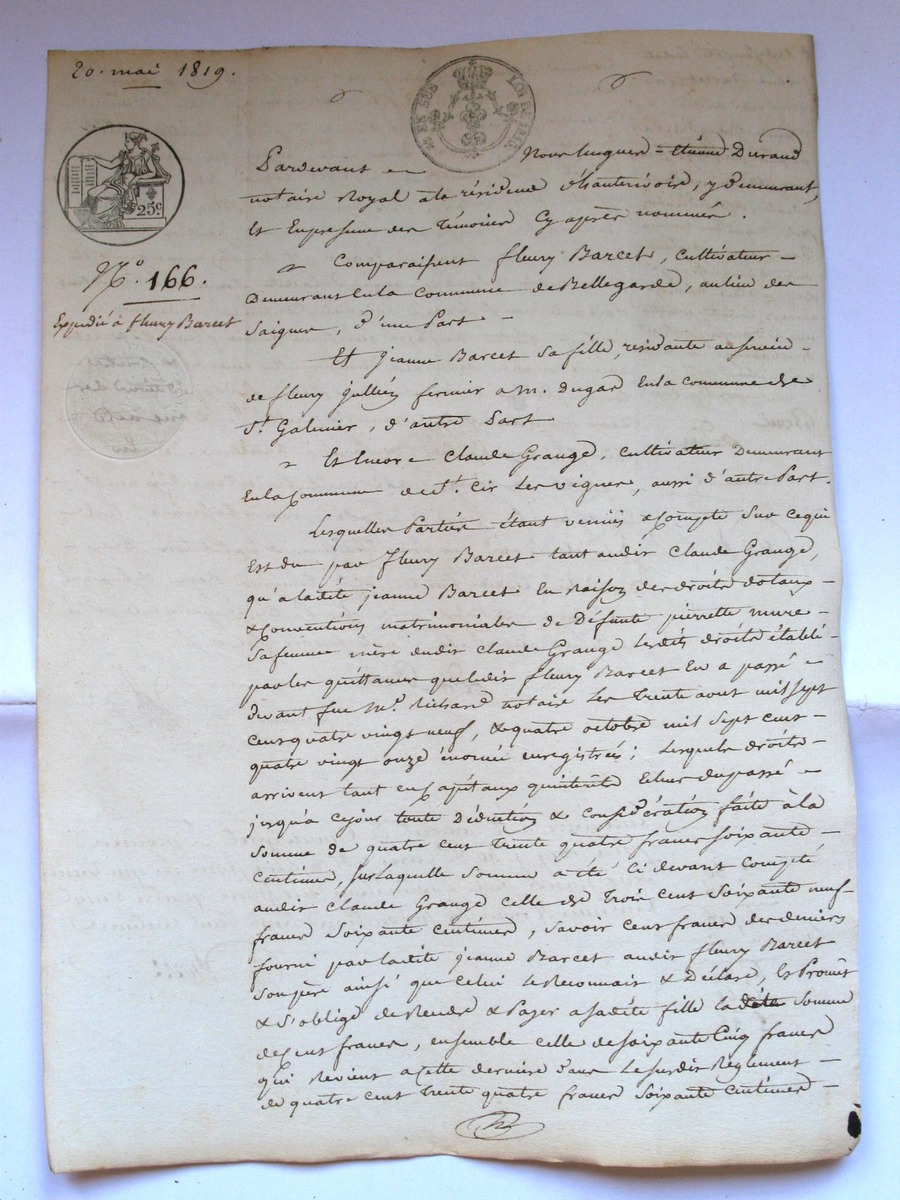 20. mai 1819.
EN SUS
LOI DE 1816
25c
N.o 166.
Expédié à fleury Barcet
Pardevant Nous Etienne Durand
notaire Royal à la résidence y demeurant,
et En presence des Témoins Cy après nommés.
Comparaissent fleury Barcet, cultivateur
Demeurant En la Commune de Bellegarde, au lieu des
Saignes, d'une Part
Et jeanne Barcet sa fille, residante au service
de fleury jullien fermier a M. dugas En la commune de
St. Galmier, d'autre Part
Et Encore Claude Grange, cultivateur Demeurant
En la Commune de St. Cir Les vignes, aussi d'autre Part.
Lesquelles Parties étant venues à Compte Sur ce qui
Est du par fleury Barcet tant audit Claude Grange,
qu'a ladite jeanne Barcet En Raison des droits dotaux
& Conventions matrimoniales de Défunte pierrette mure
Sa femme mère dudit Claude Grange Lesdits droits établi
par les quittances que ledit fleury Barcet En a passé
devant feu Me. Richard notaire Les Trente aout mil sept
cent quatre vingt neuf, & quatre octobre mil sept cent
quatre vingt onze enregistrées; Lesquels droits
arrivent tant en Capitaux qu'intérêts Echus du passé
jusqu'a ce jour toute Déduction & Considération faite à la
Somme de quatre cent Trente quatre francs soixante
Centimes, sur laquelle Somme a été ci devant Compté
audit Claude Grange celle de Trois Cent Soixante neuf
francs Soixante Centimes, savoir Cent francs des deniers
fourni par ladite jeanne Barcet audit fleury Barcet
Son père ainsi que celui Le Reconnait & Déclare, Et Promet
& S'oblige de Rendre & Payer a sadite fille la Somme
de Cent francs, ensemble celle de soixante Cinq francs
qui Revient a Cette derniere dans Le susdit Reglement
de quatre cent Trente quatre francs Soixante Centimes